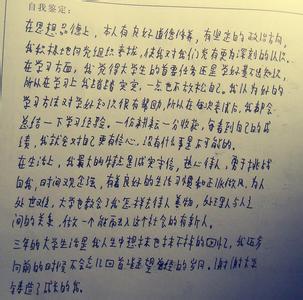 自我鉴定：
在思想品德上，本人有良好道德修养，有坚定的政治方向，
我积极地向党组织靠拢，使我对我们党有更为深刻的认识。
在学习方面，我觉得大学生的首要任务还是学好基本知识，
所以在学习上我踏踏实定，一点也不放松自己。我认为好的
学习方法对学好知识很有帮助，所以在每次考试后，我都会
总结一下学习经验。一份耕耘一分收获，每看到自己的成
绩，我就会对自己更有信心，没有什么事是不可能的。
在生活上，我最大的特点是诚实守信，热心待人，勇于挑战
自我，时间观念强，有着良好的生活习惯和正派作风，为人
处世对。大学也教会了我怎样去待人善物，处理人与人之
间的关系，做一个能融入这个社会的有新人。
三年的大学生活是我人生中想抹也抹不掉的回忆，我迈步
向前的时候不会忘记回首凝望曾经的岁月。谢谢大学